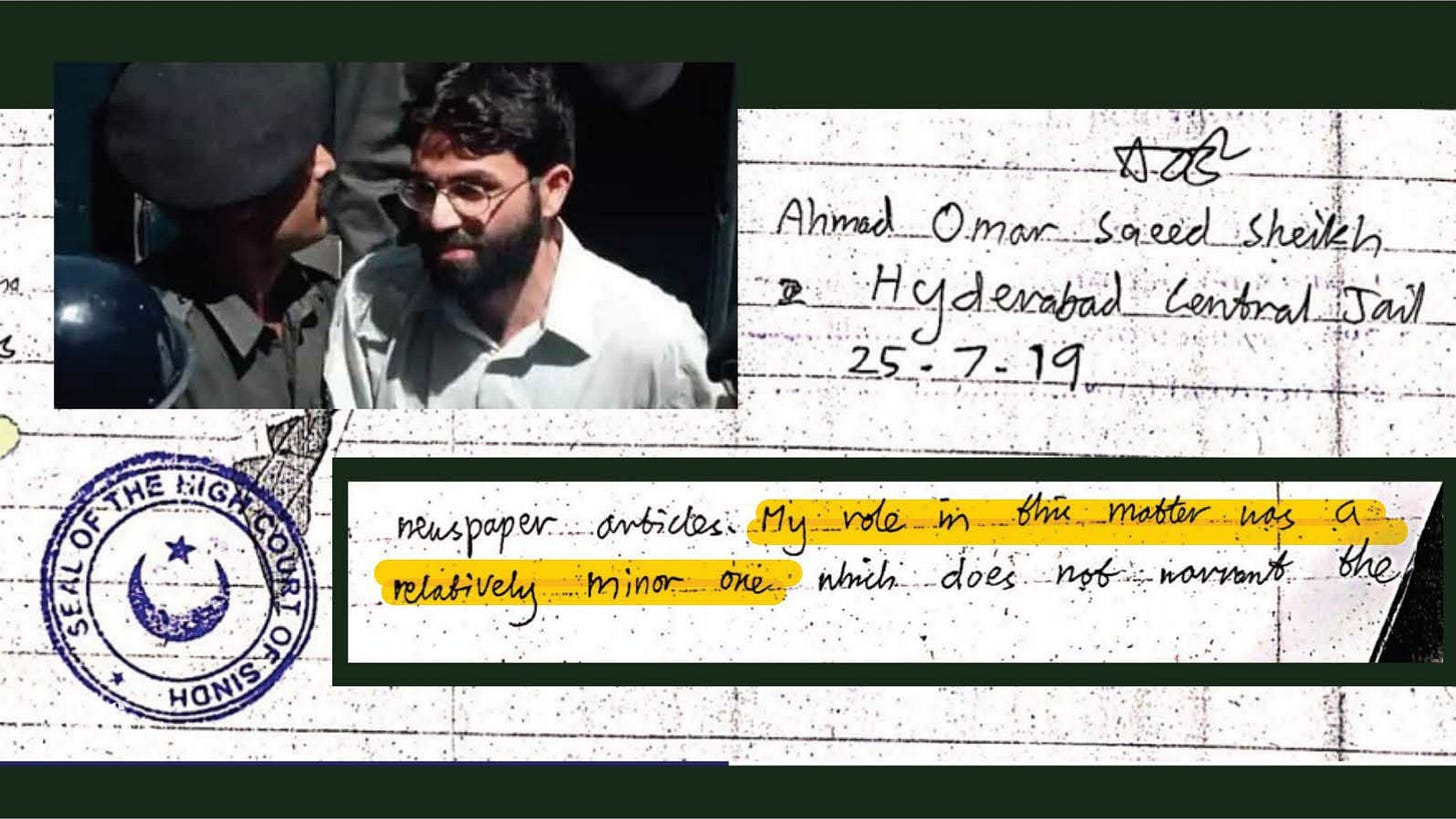 Ahmad Omar Saeed Sheikh
Hyderabad Central Jail
25-7-19
SEAL OF THE HIGH COURT OF SINDH
newspaper articles. My role in this matter was a
relatively minor one which does not warrant the